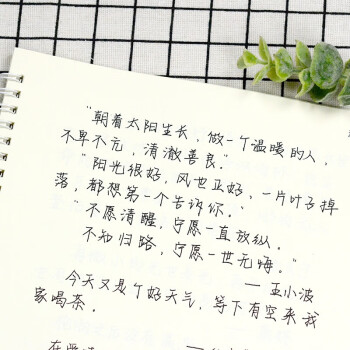 “朝着太阳生长，做一个温暖的人，
不卑不亢，清澈善良。”
“阳光很好，风也正好，一片叶子掉
落，都想第一个告诉你。”
“不愿清醒，宁愿一直放纵。
不知归路，宁愿一世无悔。”
——王小波
今天又是个好天气，等下有空来我
家喝茶。